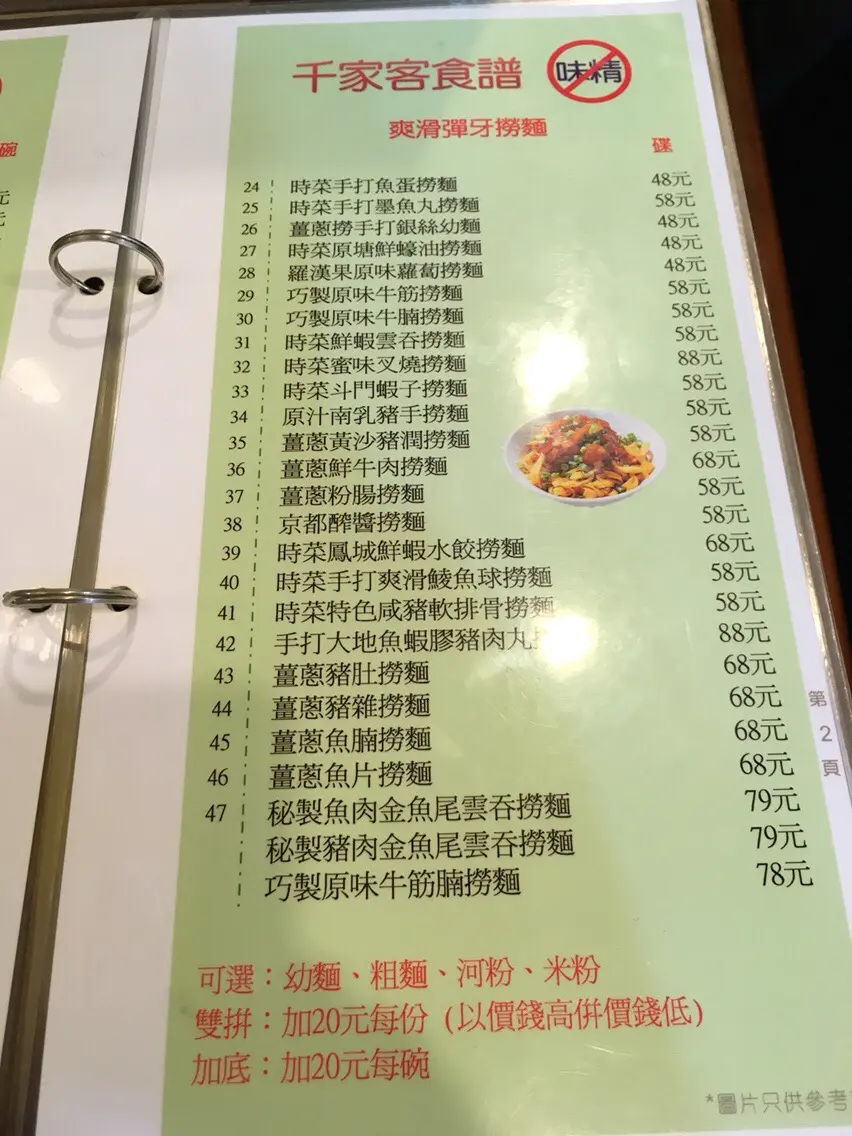 碗
元
千家客食譜 味精
爽滑彈牙撈麵
碟
24 時菜手打魚蛋撈麵 48元
25 時菜手打墨魚丸撈麵 58元
26 薑蔥撈手打銀絲幼麵 48元
27 時菜原塘鮮蠔油撈麵 48元
28 羅漢果原味蘿蔔撈麵 48元
29 巧製原味牛筋撈麵 58元
30 巧製原味牛腩撈麵 58元
31 時菜鮮蝦雲吞撈麵 58元
32 時菜蜜味叉燒撈麵 88元
33 時菜斗門蝦子撈麵 58元
34 原汁南乳豬手撈麵 58元
35 薑蔥黃沙豬潤撈麵 58元
36 薑蔥鮮牛肉撈麵 68元
37 薑蔥粉腸撈麵 58元
38 京都醡醬撈麵 58元
39 時菜鳳城鮮蝦水餃撈麵 68元
40 時菜手打爽滑鯪魚球撈麵 58元
41 時菜特色咸豬軟排骨撈麵 58元
42 手打大地魚蝦膠豬肉丸 88元
43 薑蔥豬肚撈麵 68元
44 薑蔥豬雜撈麵 68元
45 薑蔥魚腩撈麵 68元
46 薑蔥魚片撈麵 68元
47 秘製魚肉金魚尾雲吞撈麵 79元
秘製豬肉金魚尾雲吞撈麵 79元
巧製原味牛筋腩撈麵 78元
第2頁
可選：幼麵、粗麵、河粉、米粉
雙拚：加20元每份（以價錢高併價錢低）
加底：加20元每碗
*圖片只供參考